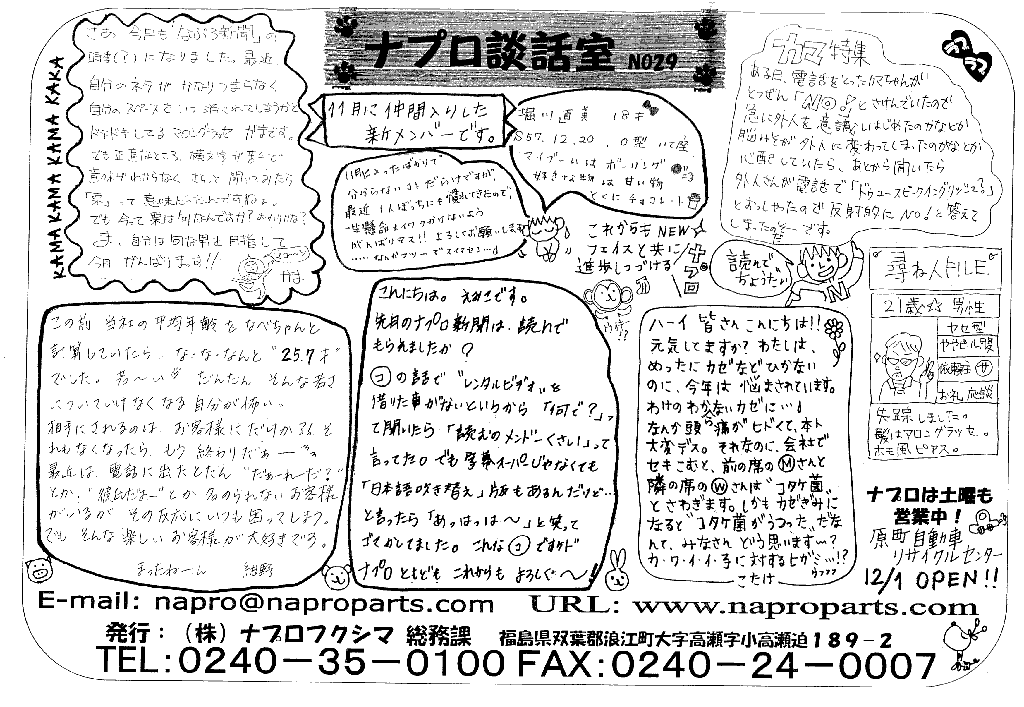 ナプロ談話室 NO29
KAMA KAMA KAMA KAKA
さあ 今月も「なぷろ新聞」の
時期(?)になりました。最近
自分のネタが かなりつまらなく
でも正直なところ、横文字が苦手で
今月 がんばります!!
かま
11月に仲間入りした
新メンバーです。
堀川道美 18才
S57.12.20. O型 いて座
マイブームは ボーリング
好きな物は 甘い物
とくに チョコレート
11月に入ったばかりで
分からないコトだらけですが、
最近 1人ぼっちにも慣れてきたので、
一生懸命メイワクかけないよう
がんばりマス!! よろしくお願いします
…なんかフリーでスイマセン…
これからも NEW
フェイスと共に
進歩しつづける
ナプロ
特集
ラブ
ラブ
ある日、電話をとったカマちゃんが
とつぜん「NO!」とさけんでいたので
急に外人を意識しはじめたのかなとか
脳みそが外人に変わってしまったのかなとか
心配していたら、あとから聞いたら
外人さんが電話で「ドゥユースピークイングリッシュ?」
とおっしゃたので反射的に NO!と答えて
しまったのだそーです。
読んで
ちょうだい
尋ね人FILE.
21歳 男性
ヤセ型
やや
依頼主 サ
お礼 応談
失踪しました。
髪はマロングラッセ。
ホモ風ピアス。
この前 当社の平均年齢を なべちゃんと
計算していたら、な・な・なんと “25.7才”
でした。若〜い だんだん そんな若さ
についていけなくなる自分が怖い。
相手にされるのは、お客様にだけか
それもなくなったら、もう終わりだぁー
最近は、電話に出たとたん “だぁーれーだ?”
がいるが その反応にいつも困ってしまう。
でも そんな楽しいお客様が大好きです。
まったねーん 紺野
こんにちは。えみこです。
先月のナプロ新聞は、読んで
もらえましたか?
コの話で “レンタルビデオ”を
借りた事がないというから 「何で?」っ
て聞いたら「読むのメンドーくさい」って
言ってた。でも 字幕スーパーじゃなくても
「日本語吹き替え」版もあるんだけど…
と言ったら「あっはっは〜」と笑って
ゴマかしてました。こんな コ ですけド
ナプロともども これからも よろしく〜!
ハーイ 皆さん こんにちは!!
元気してますか? わたしは、
めったに カゼなど ひかない
のに、今年は 悩まされています。
わけのわかんないカゼに…
なんか頭痛がヒドくて、本ト
大変デス。それなのに、会社で
セキこむと、前の席の Mさんと
隣の席の Wさんは“コタケ菌”
とさわぎます。しかも カゼぎみに
なると“コタケ菌がうつった、だな
んて、みなさん どう思います…?
カ・ワ・イ・イ・子に対するヒガミ…!?
こたけ ウフフフ
ナプロは土曜も
営業中!
原町自動車
リサイクルセンター
12/1 OPEN!!
E-mail: napro@naproparts.com URL: www.naproparts.com
発行:(株)ナプロフクシマ 総務課 福島県双葉郡浪江町大字高瀬字小高瀬迫189-2
TEL:0240-35-0100 FAX:0240-24-0007